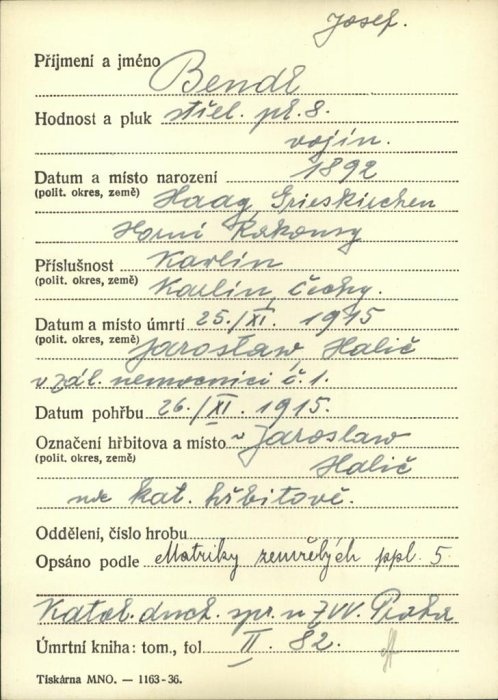 Josef.
Příjmení a jméno Bendl
Hodnost a pluk střel. pl. 8.
vojín.
Datum a místo narození 1892
(polit. okres, země) Haag, Grieskirchen
Horní Rakousy
Příslušnost Karlín
(polit. okres, země) Karlín, Čechy.
Datum a místo úmrtí 25./XI. 1915
(polit. okres, země) Jaroslaw, Halič
v zál. nemocnici č. 1.
Datum pohřbu 26./XI. 1915.
Označení hřbitova a místo v Jaroslaw
(polit. okres, země) Halič
na kat. hřbitově.
Oddělení, číslo hrobu
Opsáno podle Matriky zemřelých ppl. 5
Katol. duch. spr. u ZVV. Praha
Úmrtní kniha: tom., fol II. 82.
Tiskárna MNO. — 1163-36.